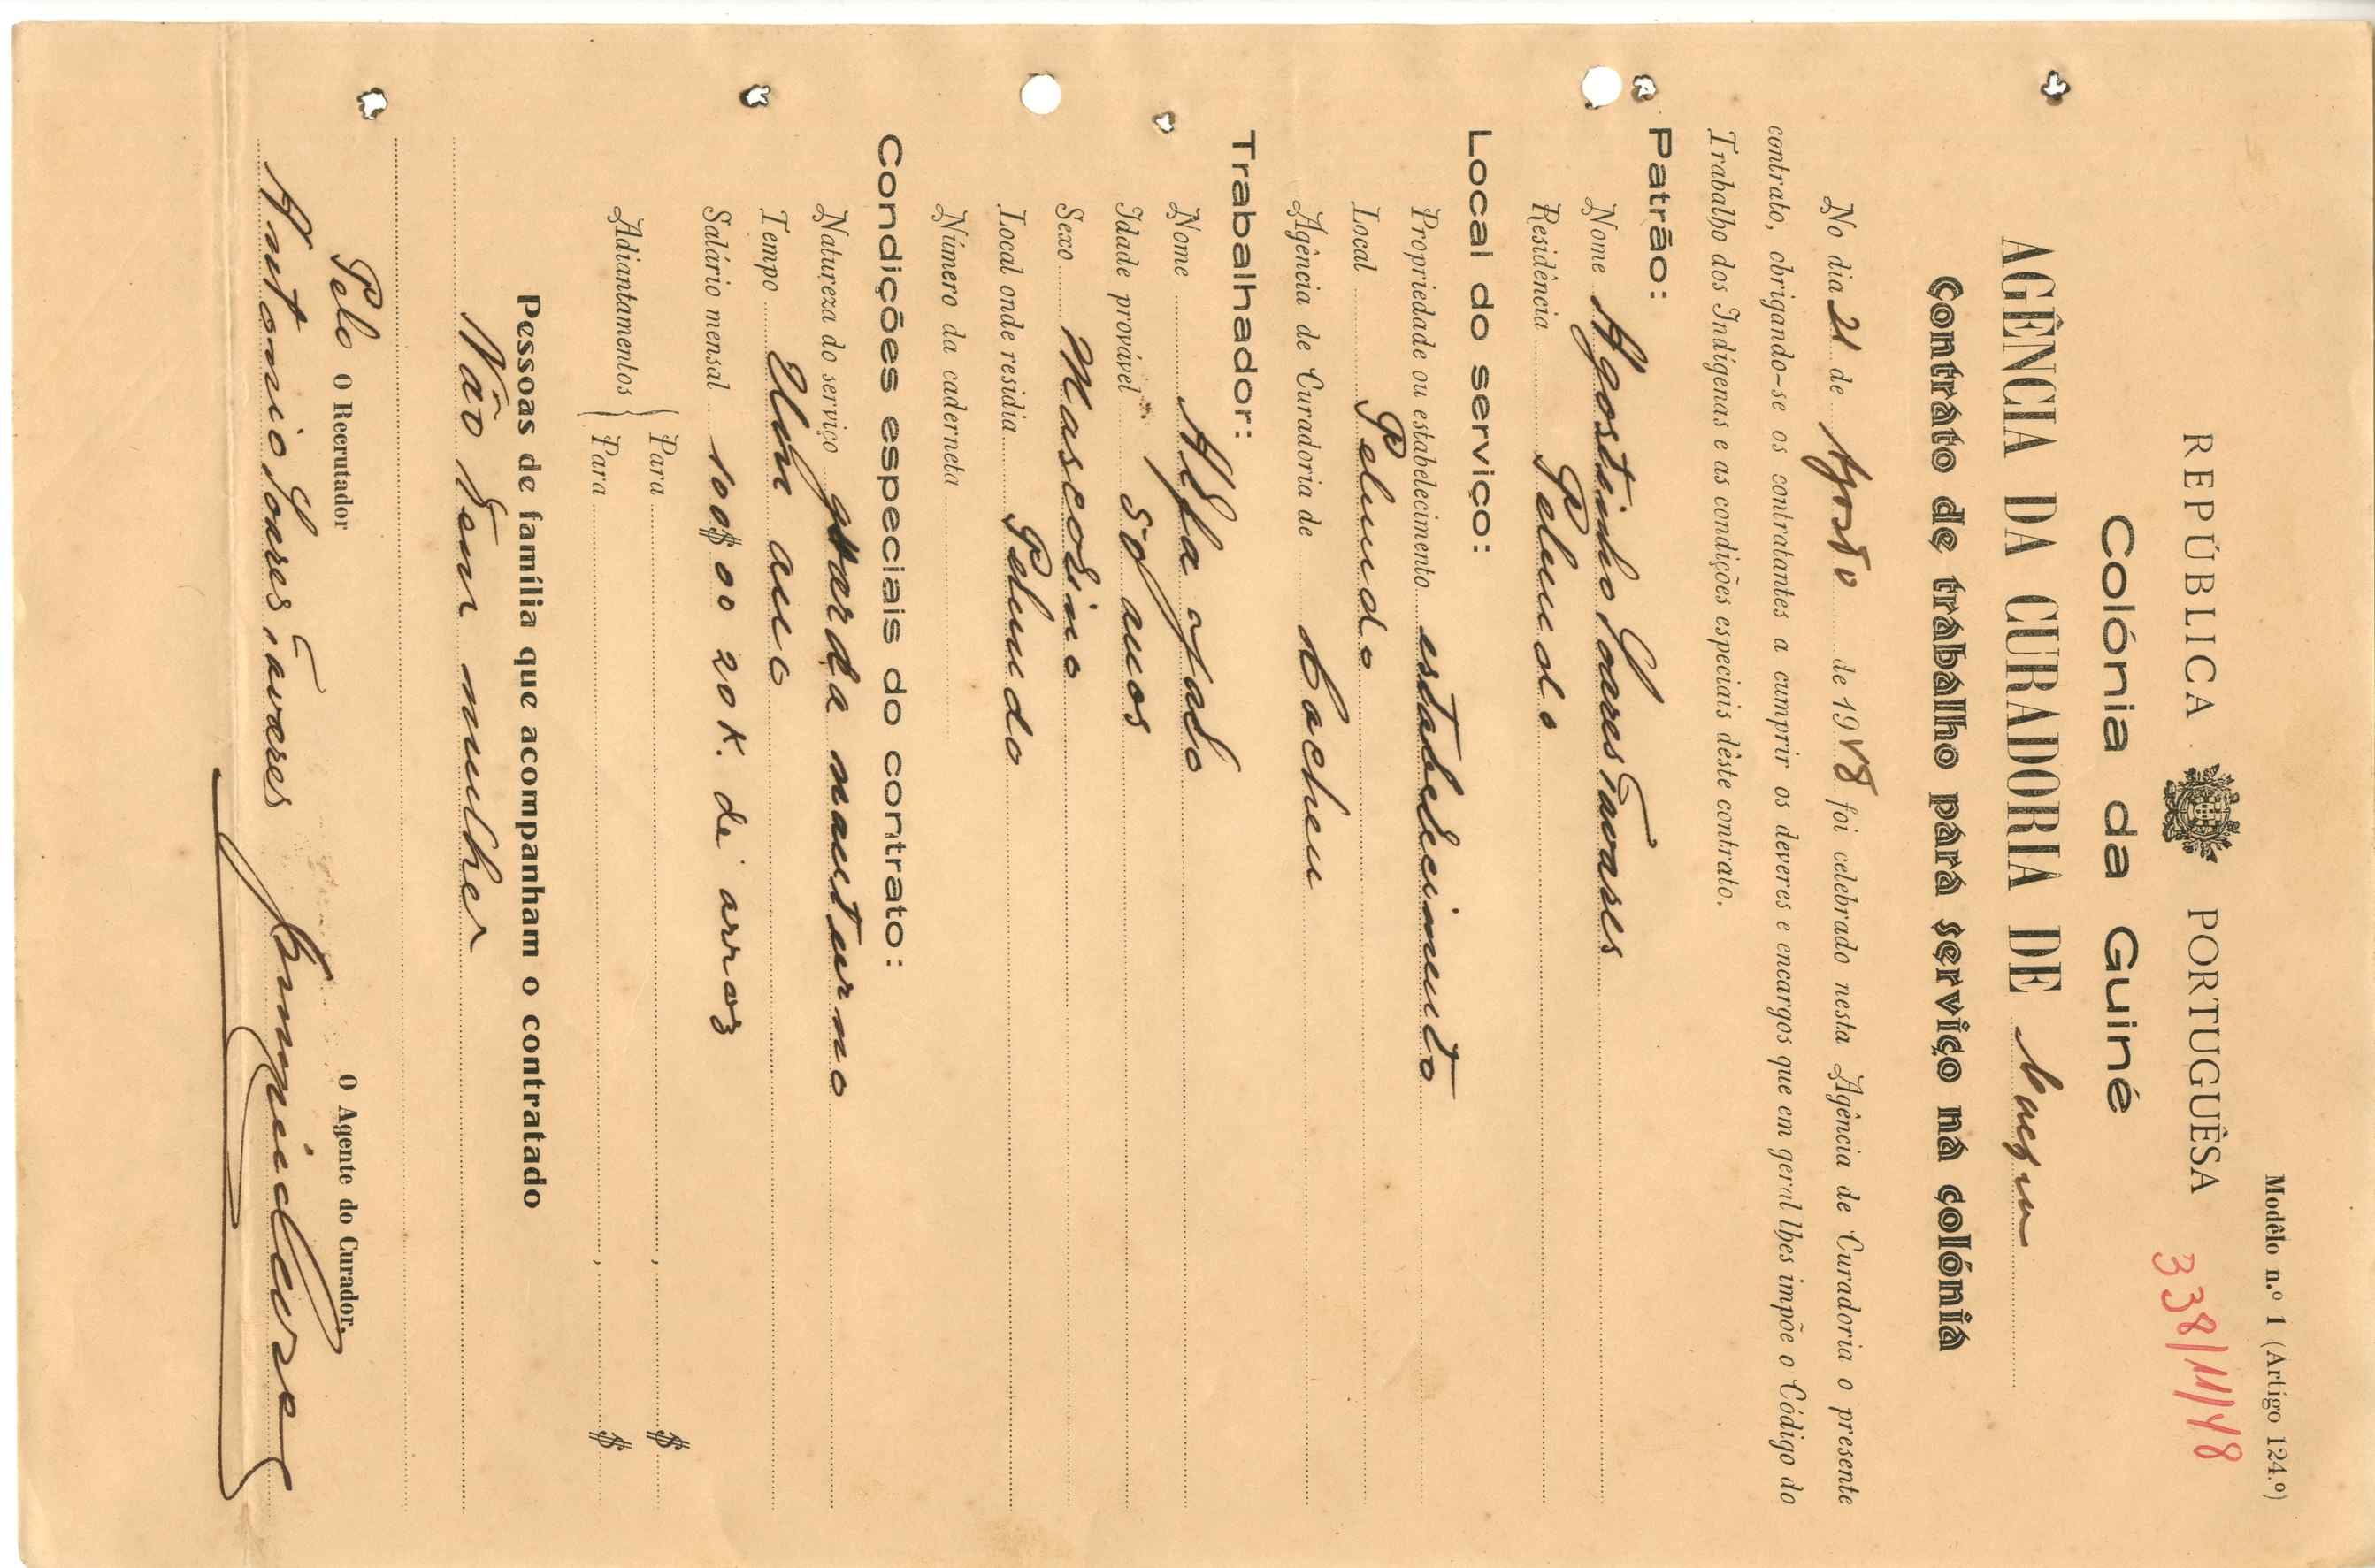 Modêlo n.º 1 (Artigo 124.º)
338/11/48
REPÚBLICA PORTUGUÊSA
Colónia da Guiné
AGÊNCIA DA CURADORIA DE Cacheu
Contrato de trabalho para serviço na colónia
No dia 21 de Agosto de 1948 foi celebrado nesta Agência de Curadoria o presente
contrato, obrigando-se os contratantes a cumprir os deveres e encargos que em geral lhes impõe o Código do
Trabalho dos Indígenas e as condições especiais dêste contrato.
Patrão:
Nome Agostinho Soares Tavares
Residência Pelundo
Local do serviço:
Propriedade ou estabelecimento estabelecimento
Local Pelundo
Agência de Curadoria de Cacheu
Trabalhador:
Nome Alfa
Idade provável 50 anos
Sexo Mascolino
Local onde residia Pelundo
Número da caderneta
Condições especiais do contrato:
Natureza do serviço guarda nauturno
Tempo Um ano
Salário mensal 100$00 20 K. de arroz
Adiantamentos { Para , $
Para , $
Pessoas de família que acompanham o contratado
Não Tem mulher
Pelo O Recrutador
O Agente do Curador,
Antonio Soares Tavares